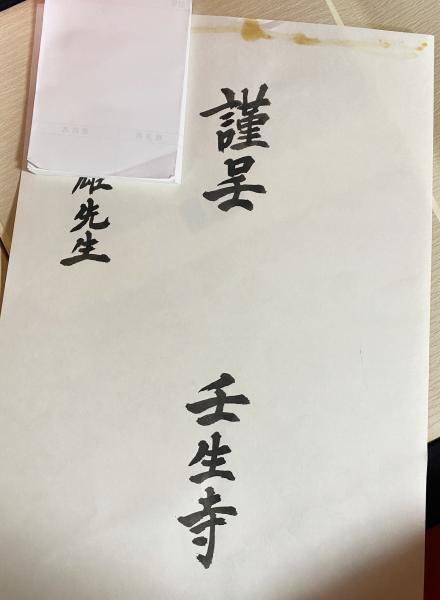 謹呈
壬生寺
雄先生